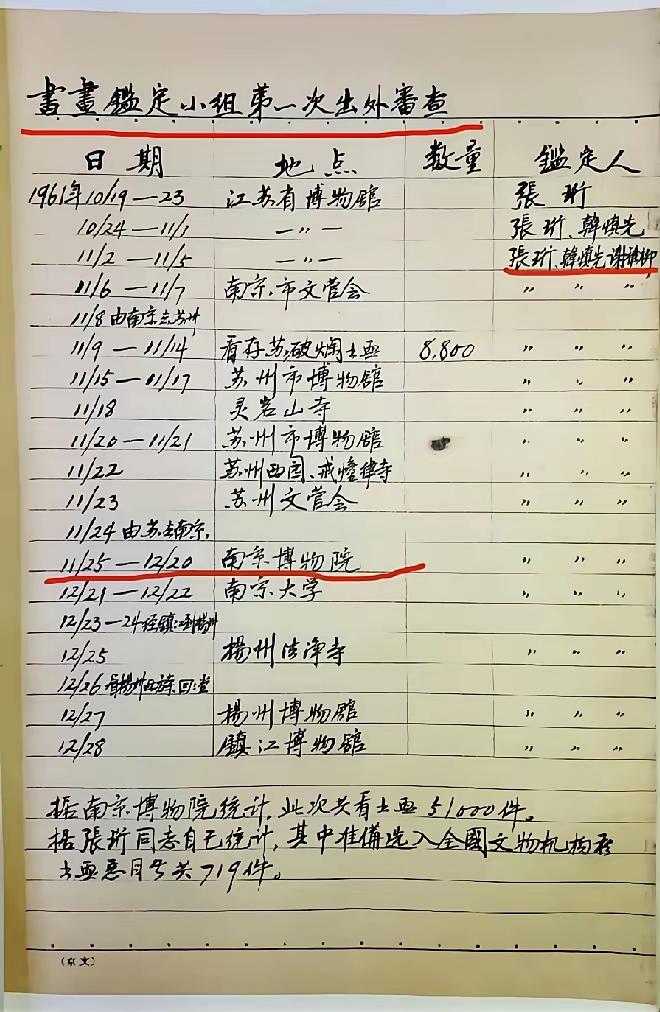 書畫鑑定小组第一次出外審查
日期 地点 数量 鑑定人
1961年10/19—23 江苏省博物館 張珩
10/24—11/1 —〃— 張珩、韓慎先
11/2—11/5 —〃— 張珩、韓慎先 谢稚柳
11/6—11/7 南京市文管会 〃 〃 〃
11/8 由南京去苏州
11/9—11/14 看存苏破烂书画 8,800 〃 〃 〃
11/15—11/17 苏州市博物館 〃 〃 〃
11/18 灵岩山寺 〃 〃 〃
11/20—11/21 苏州市博物館 〃 〃 〃
11/22 苏州西园、戒幢律寺 〃 〃 〃
11/23 苏州文管会 〃 〃 〃
11/24 由苏去南京.
11/25—12/20 南京博物院 〃 〃 〃
12/21—12/22 南京大学 〃 〃 〃
12/23—24 经镇江到揚州
12/25 揚州法净寺 〃 〃 〃
12/26 看揚州
12/27 揚州博物館 〃 〃 〃
12/28 鎮江博物館 〃 〃 〃
据南京博物院统计,此次共看书画51000件。
据張珩同志自己统计,其中准備选入全國文物机构存
书画目共719件。
(京文)